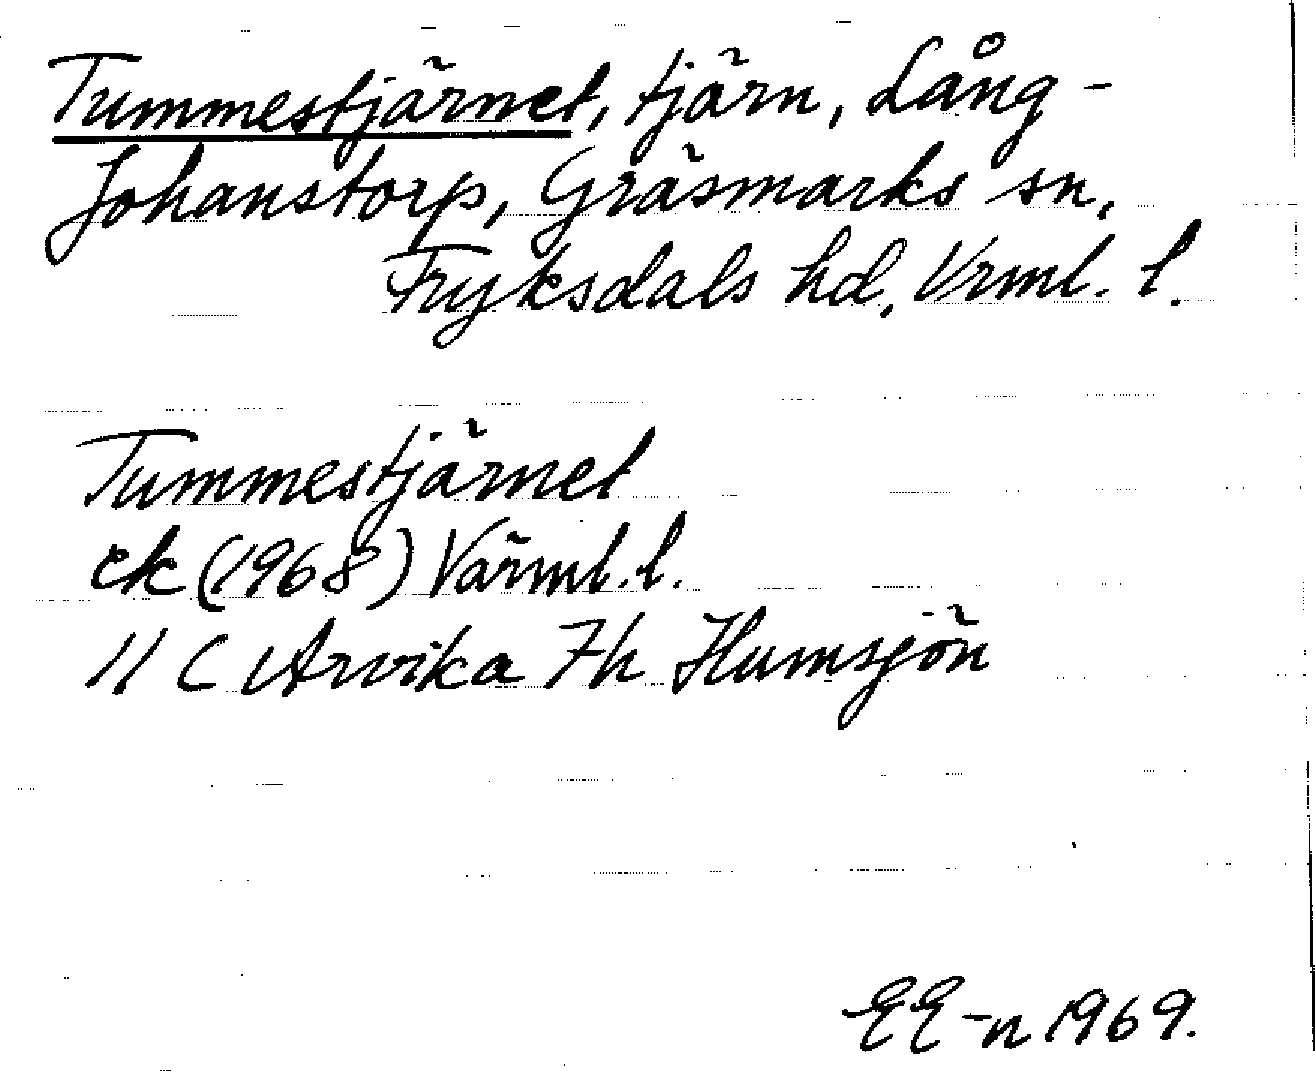 Tummestjärnet, tjärn, Lång-
Johanstorp, Gräsmarks sn,
Fryksdals hd, Vrml. l.
Tummestjärnet
ek (1968) Värml. l.
11 C Arvika 7h Humsjön
EE-n 1969.